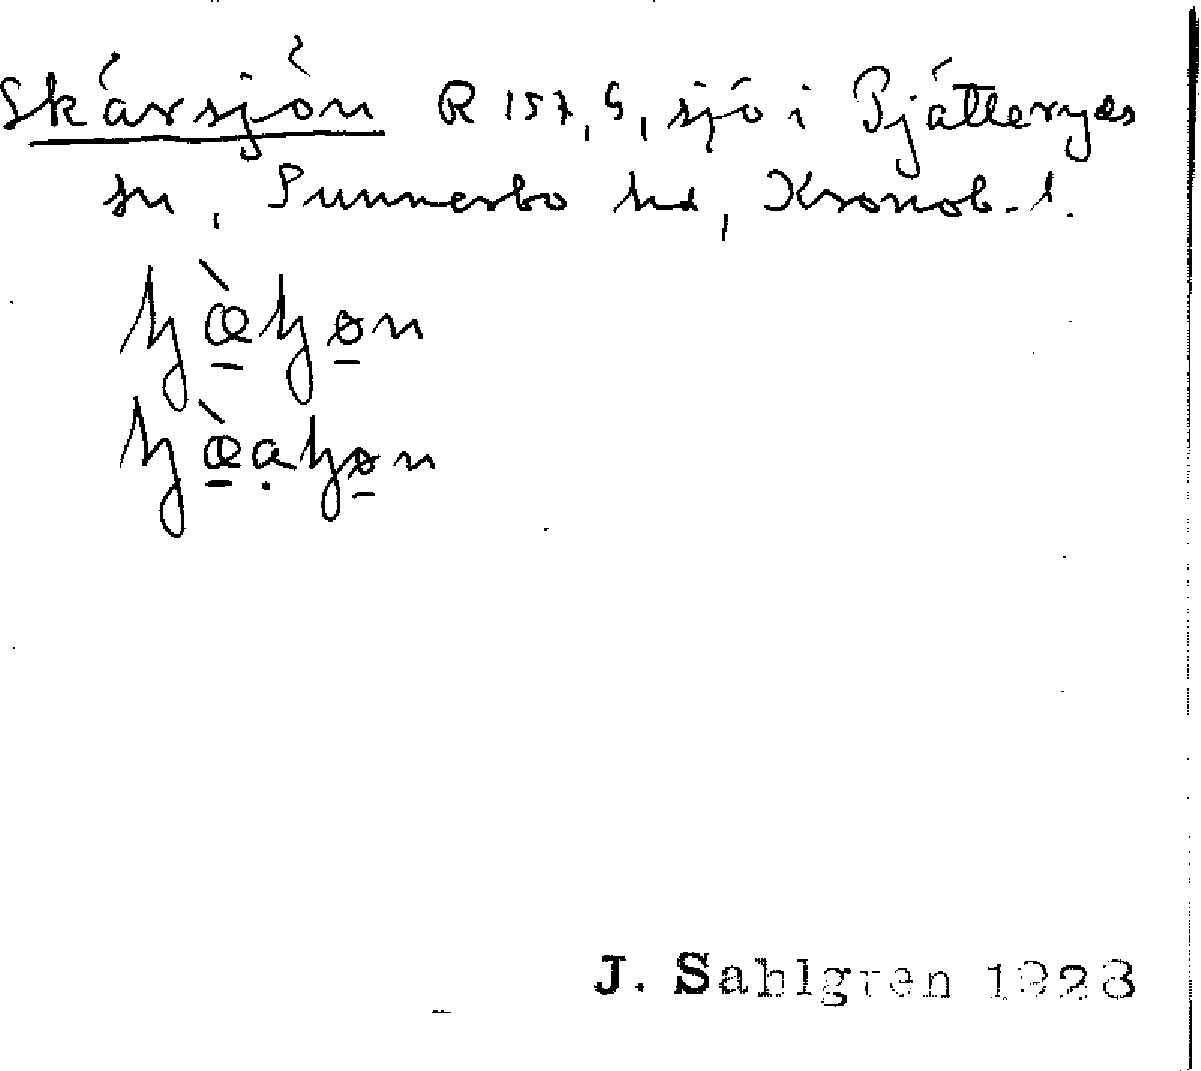 Skärsjön R 157,5, sjö i Pjätteryds
sn, Sunnerbo hd, Kronob. l.
J. Sahlgren 1928